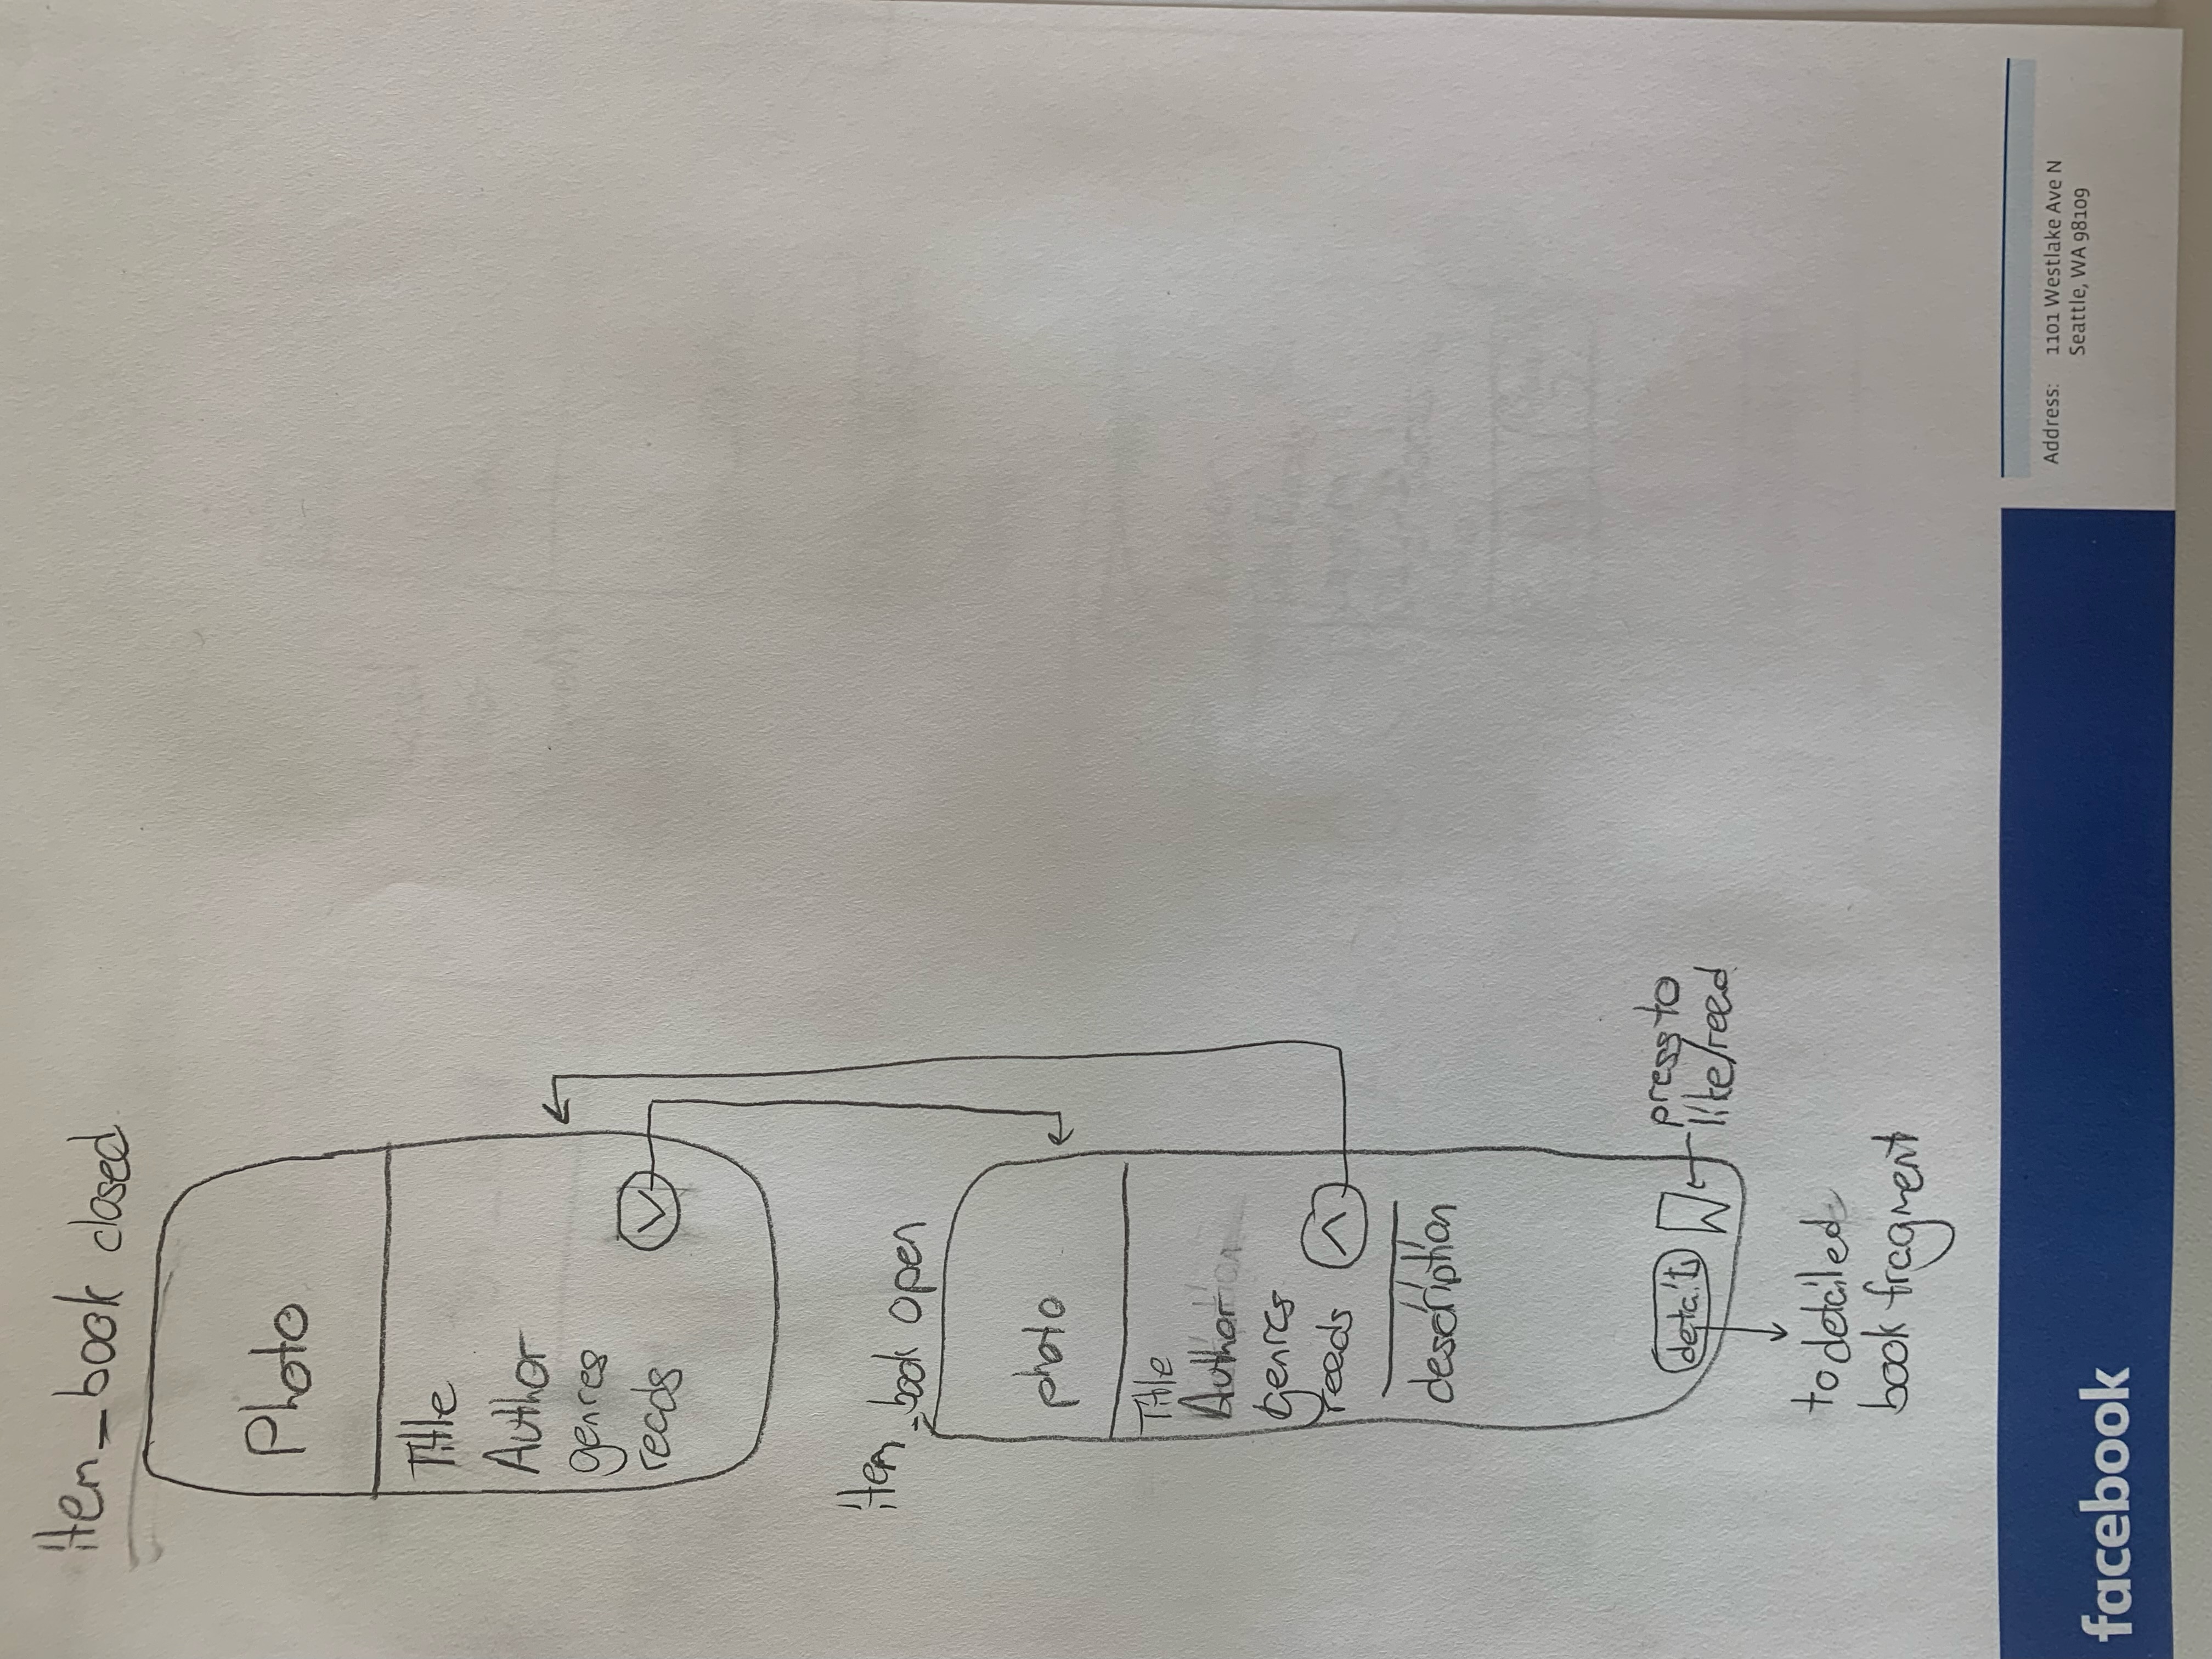 item_book closed
Photo
Title
Author
genres
reads
item_book open
photo
Title
Author
Genres
reads
description
details
press to
like/read
to detailed
book fragment
facebook
Address: 1101 Westlake Ave N
Seattle, WA 98109